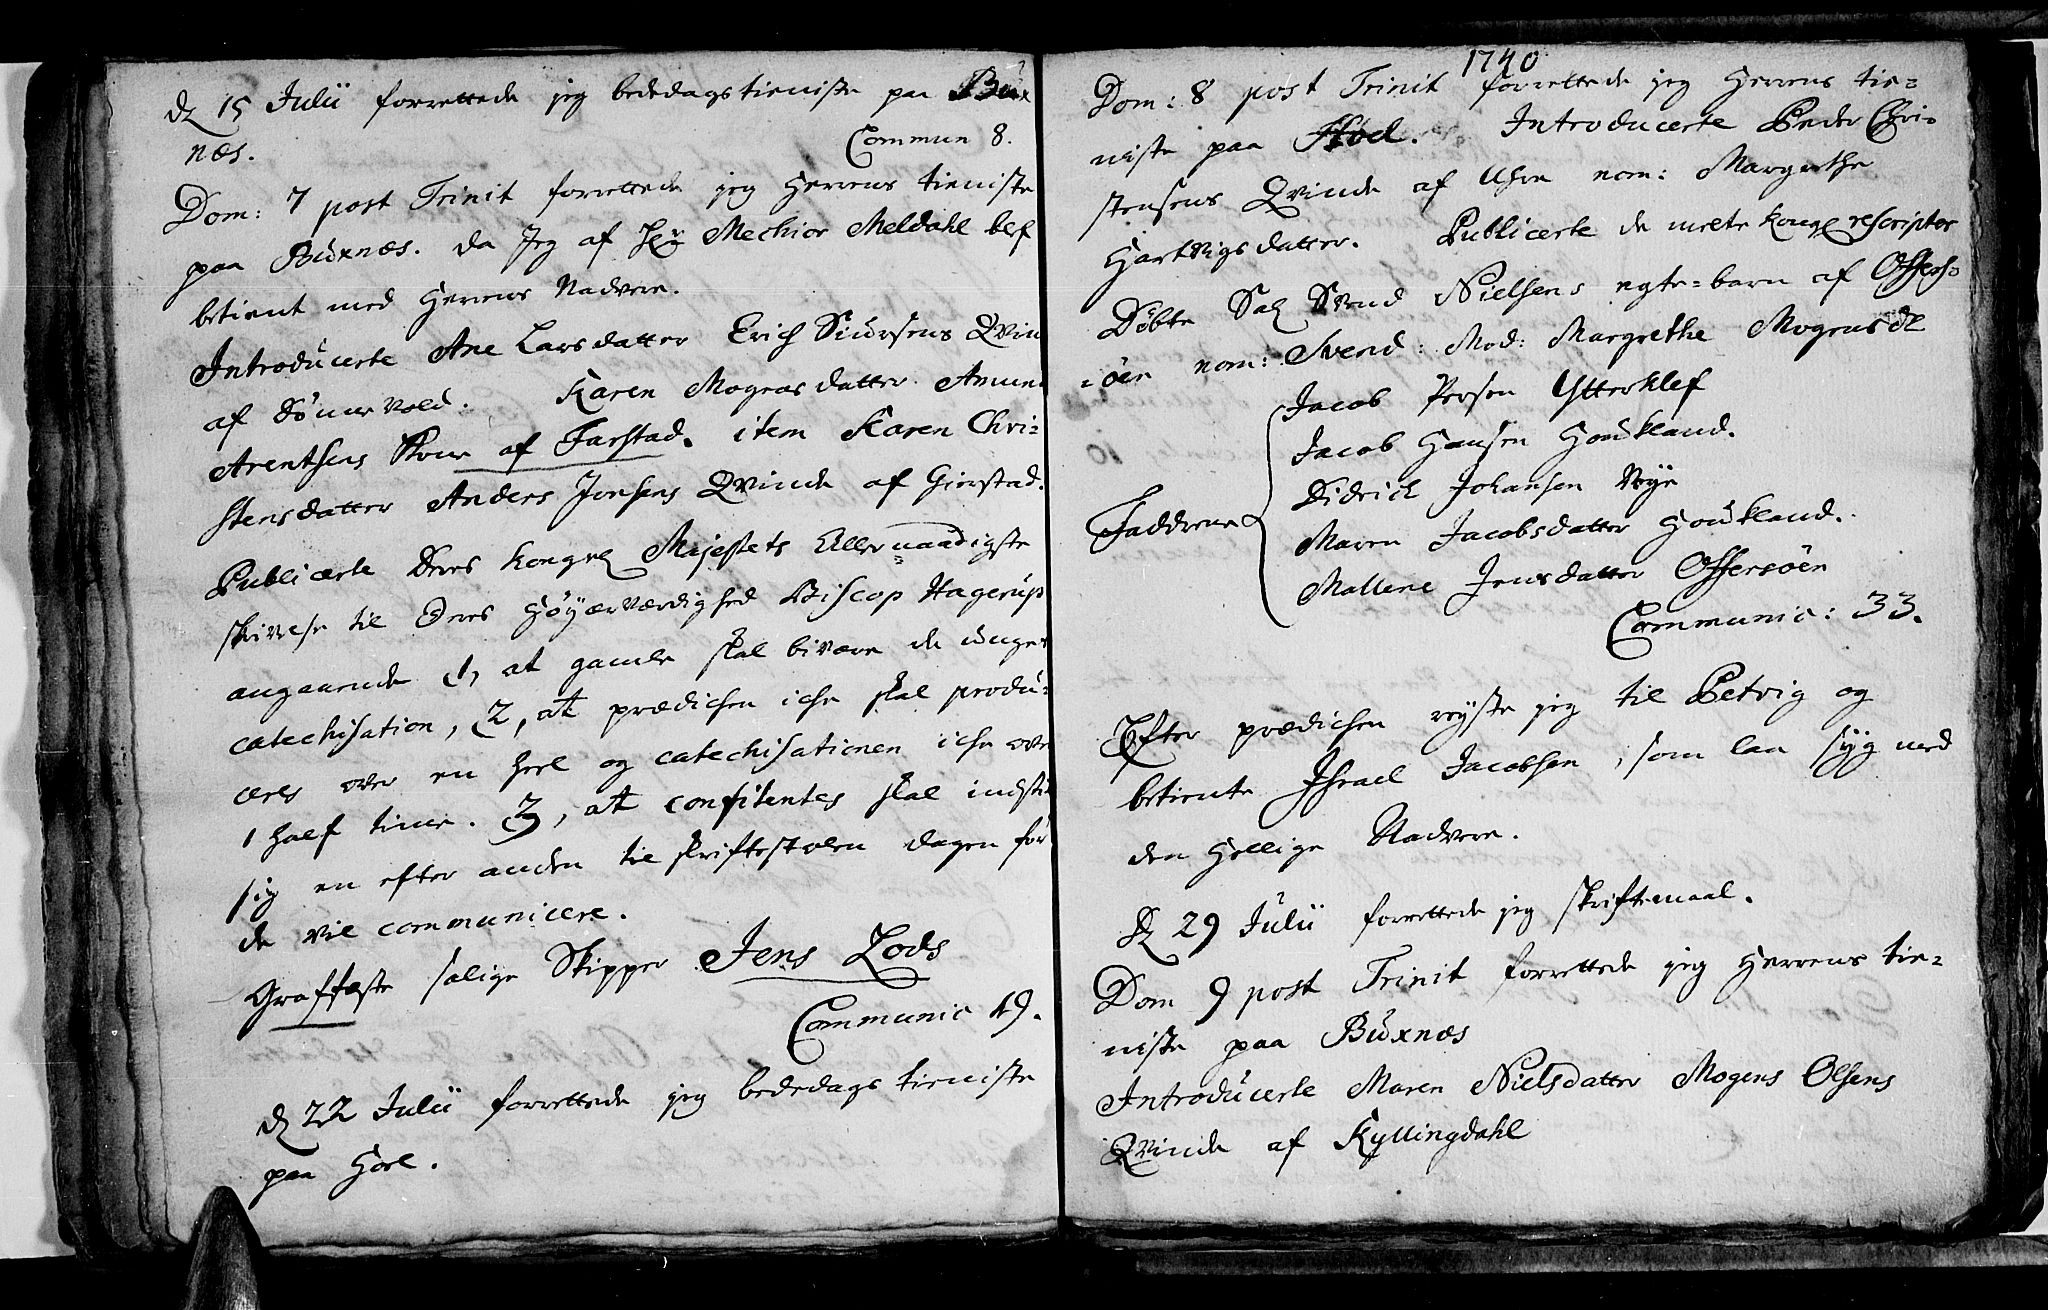 d 15 Julii forrettede jeg bededagstieniste paa Bux
næs. Commun 8.
Dom: 7 post Trinit forrettede jeg Herrens tieniste
paa Buxnæs. da Jeg af Hr Mechior Meldahl blef
betient med Herrens Nadvere.
Introducerte Ane Larsdatter Erich Siursens Qvin
af Sömervold. Karen Mogensdatter Amun
Arentsens Kone af Farstad. item Karen Chri-
stensdatter Anders Jonsens Qvinde af Gierstad.
Publicerte Deres Kongel Majestets Allernaadigste
skrivelse til Deres Höyærværdighed Biscop Hagerup
angaaende 1, at gamle skal bivære de unges
catechisation, 2, at prædicken icke skal produ-
ceres over en heel og catechisationen icke over
1 half time. 3, at confitentes skal indstil
sig en efter anden til skriftestolen dagen för
de vil communicere.
Graffæste salige Skipper Jens Lods
Communic 19.
d 22 Julii forrettede jeg bededags tieniste
paa Hoel.
1740
Dom: 8 post Trinit forrettede jeg Herrens tie-
niste paa Hoel. Introducerte Peder Chri-
stensens Qvinde af Uhre nom: Margrethe
Hartvigsdatter. Publicerte de melte kongl rescripter
Döbte Sal Svend Nielsens egte-barn af Offers-
-öen nom: Svend: Mod: Margrethe Mogensdr
Jacob Persen Ytterklef
Jacob Hansen Houkland.
Didrich Johansen Vøye
Faddrene
Maren Jacobsdatter Houkland.
Mallene Jensdatter Offersöen
Communic: 33.
Efter prædicken reyste jeg til Petvig og
betiente Jsrael Jacobsen, som laa syg med
den Hellige Nadvere.
D 29 Julii forrettede jeg skriftemaal.
Dom 9 post Trinit forrettede jeg Herrens tie-
niste paa Buxnæs
Introducerte Maren Nielsdatter Mogens Olsens
Qvinde af Kyllingdahl